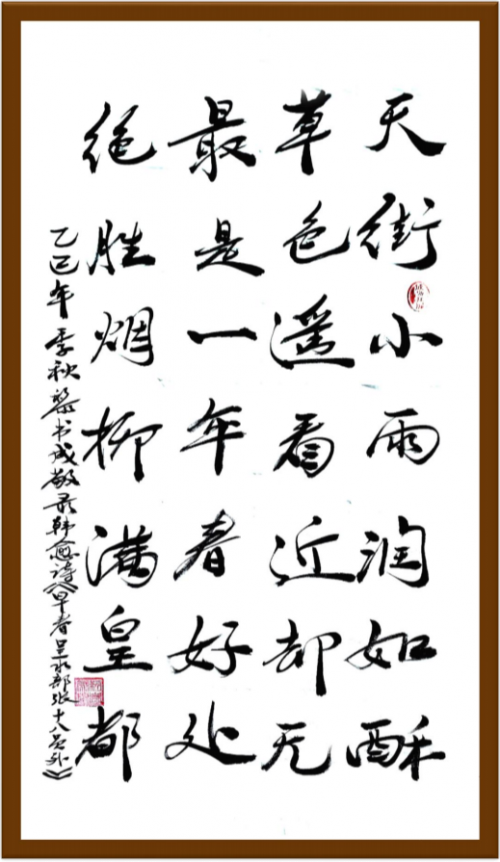 天街小雨润如酥
草色遥看近却无
最是一年春好处
绝胜烟柳满皇都
乙巳年季秋黎书成敬录韩愈诗《早春呈水部张十八员外》